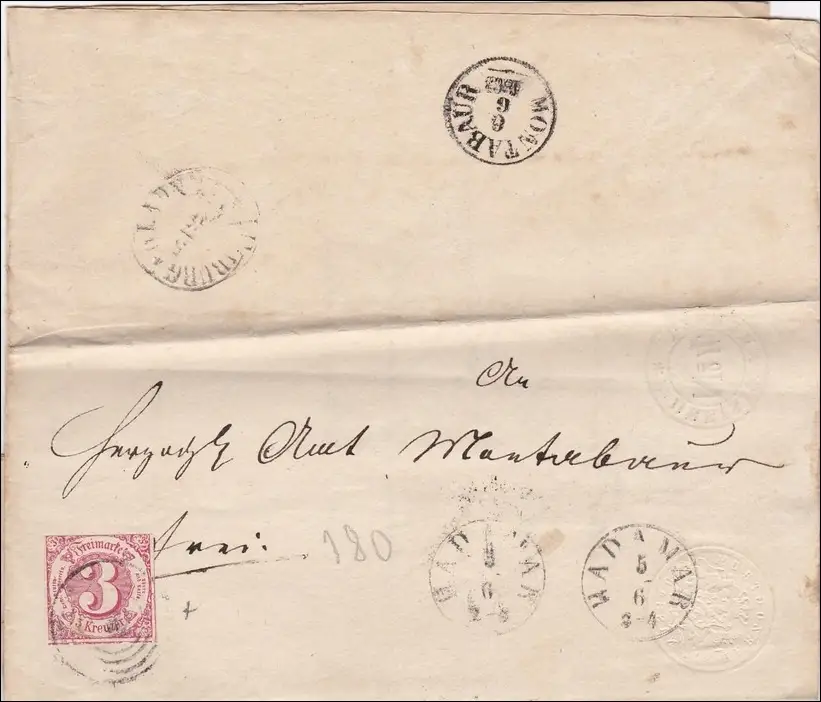 MONTABAUR
6
6
An
Herzogl. Amt Montabaur
frei.
180
Freimarke
3
3 Kreuzer
HADAMAR
5
6
2-3
HADAMAR
5
6
3-4